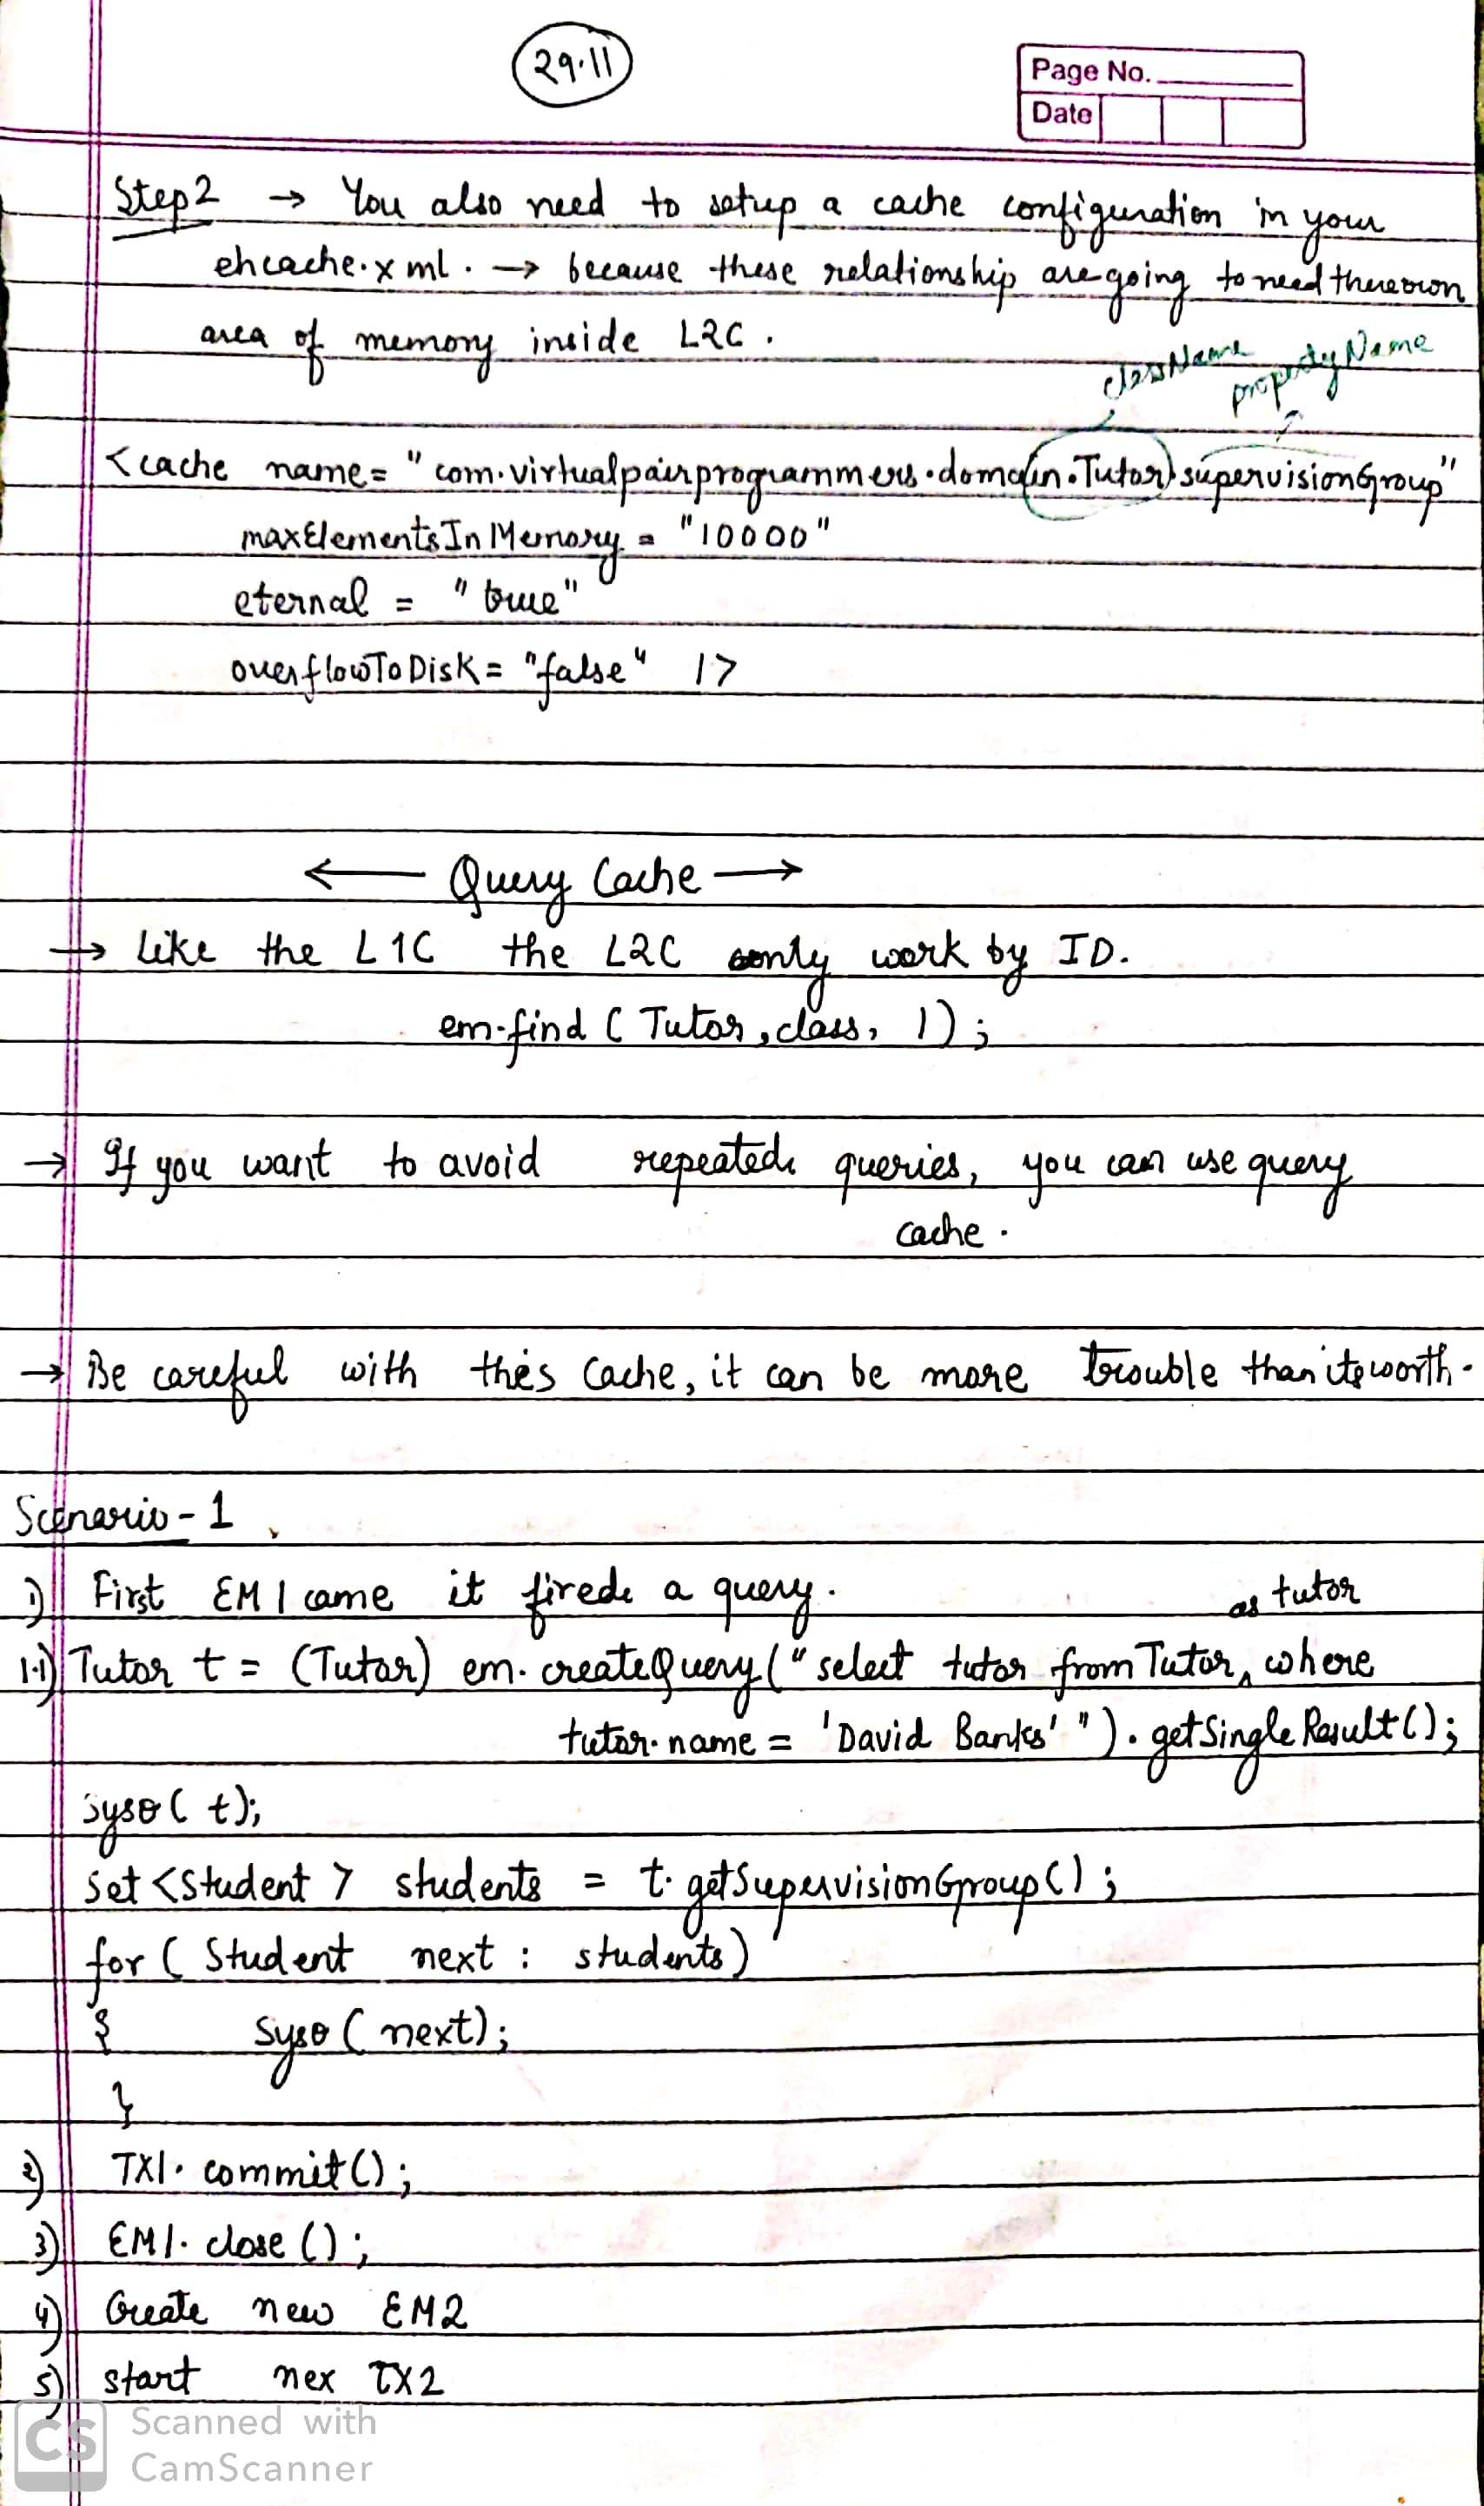 29.11
Page No.
Date
Step2 → You also need to setup a cache configuration in your
ehcache.xml. → because these relationship are going to need thereown
area of memory inside L2C.
className propertyName
<cache name= "com.virtualpairprogrammers.domain.Tutor.supervisionGroup"
maxElementsInMemory = "10000"
eternal = "true"
overflowToDisk= "false" />
← Query Cache →
→ Like the L1C the L2C only work by ID.
em.find ( Tutor, class, 1);
→ If you want to avoid repeated queries, you can use query
cache.
→ Be careful with this Cache, it can be more trouble than its worth.
Scenario-1
1) First EM1 came it fired a query.
as tutor
1.1) Tutor t = (Tutor) em.createQuery("select tutor from Tutor^ where
tutor.name = 'David Banks' ").getSingleResult();
syso( t);
set<student> students = t.getSupervisionGroup();
for ( Student next : students)
{ syso ( next);
}
2) TX1.commit();
3) EM1.close();
4) Create new EM2
5) start nex TX2
CS Scanned with
CamScanner